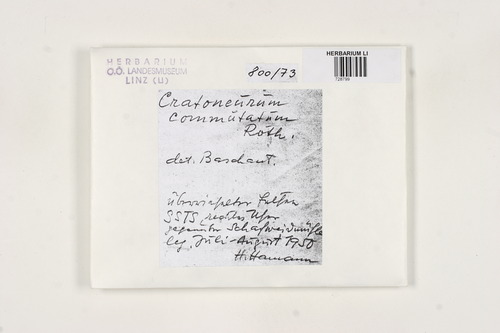 HERBARIUM
O.Ö. LANDESMUSEUM
LINZ (LI)
800/73
HERBARIUM LI
728799
Cratoneurum
commutatum
Roth.
det. Baschant.
überrieselter Felsen
rechtes Ufer
gegenüber
leg. Juli-August 1950
H. Hamann